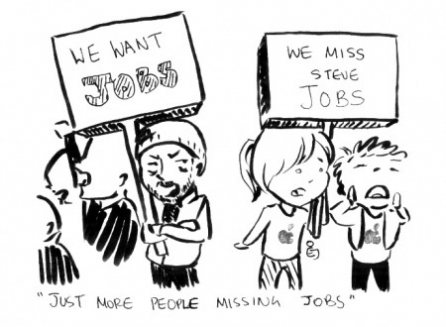 WE WANT
JOBS
WE MISS
STEVE
JOBS
"JUST MORE PEOPLE MISSING JOBS"